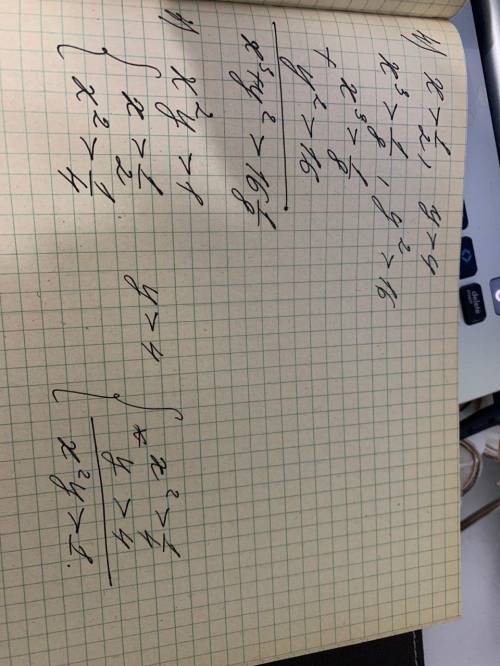 4) x > 1/2, y > 4
x³ > 1/8, y² > 16
+ x³ > 1/8
y² > 16
x³ + y² > 16 1/8
2) x²y > 1
{ x > 1/2
x² > 1/4
y > 4
{ × x² > 1/4
y > 4
x²y > 1.
delete